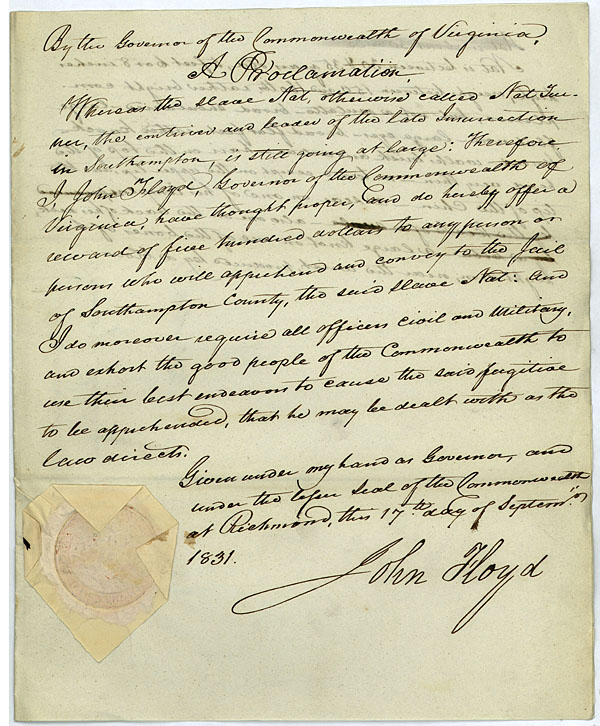 By the Governor of the Commonwealth of Virginia,
A Proclamation.
Whereas the slave Nat, otherwise called Nat Tur-
ner, the contriver and leader of the late Insurrection
in Southampton, is still going at large: Therefore
I, John Floyd, Governor of the Commonwealth of
Virginia, have thought proper, and do hereby offer a
reward of five hundred dollars to any person or
persons who will apprehend and convey to the Jail
of Southampton County, the said slave Nat: and
I do moreover require all officers civil and military,
and exhort the good people of the Commonwealth to
use their best endeavors to cause the said fugitive
to be apprehended, that he may be dealt with as the
law directs.
Given under my hand as Governor, and
under the lesser seal of the Commonwealth
at Richmond, this 17th day of Septem.r
1831.
John Floyd